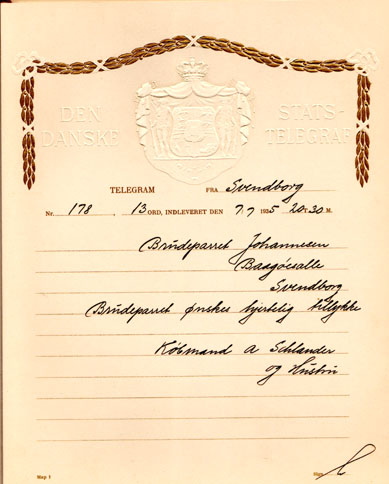 DEN DANSKE STATS-TELEGRAF
TELEGRAM FRA Svendborg
Nr. 178, 13 ORD, INDLEVERET DEN 7/7 1935 20 T. 30 M.
Brudeparret Johannesen
Baagöesalle
Svendborg
Brudeparret ønskes hjertelig tillykke
Købmand A Schlander
og Hustru
Map 1
Sign.